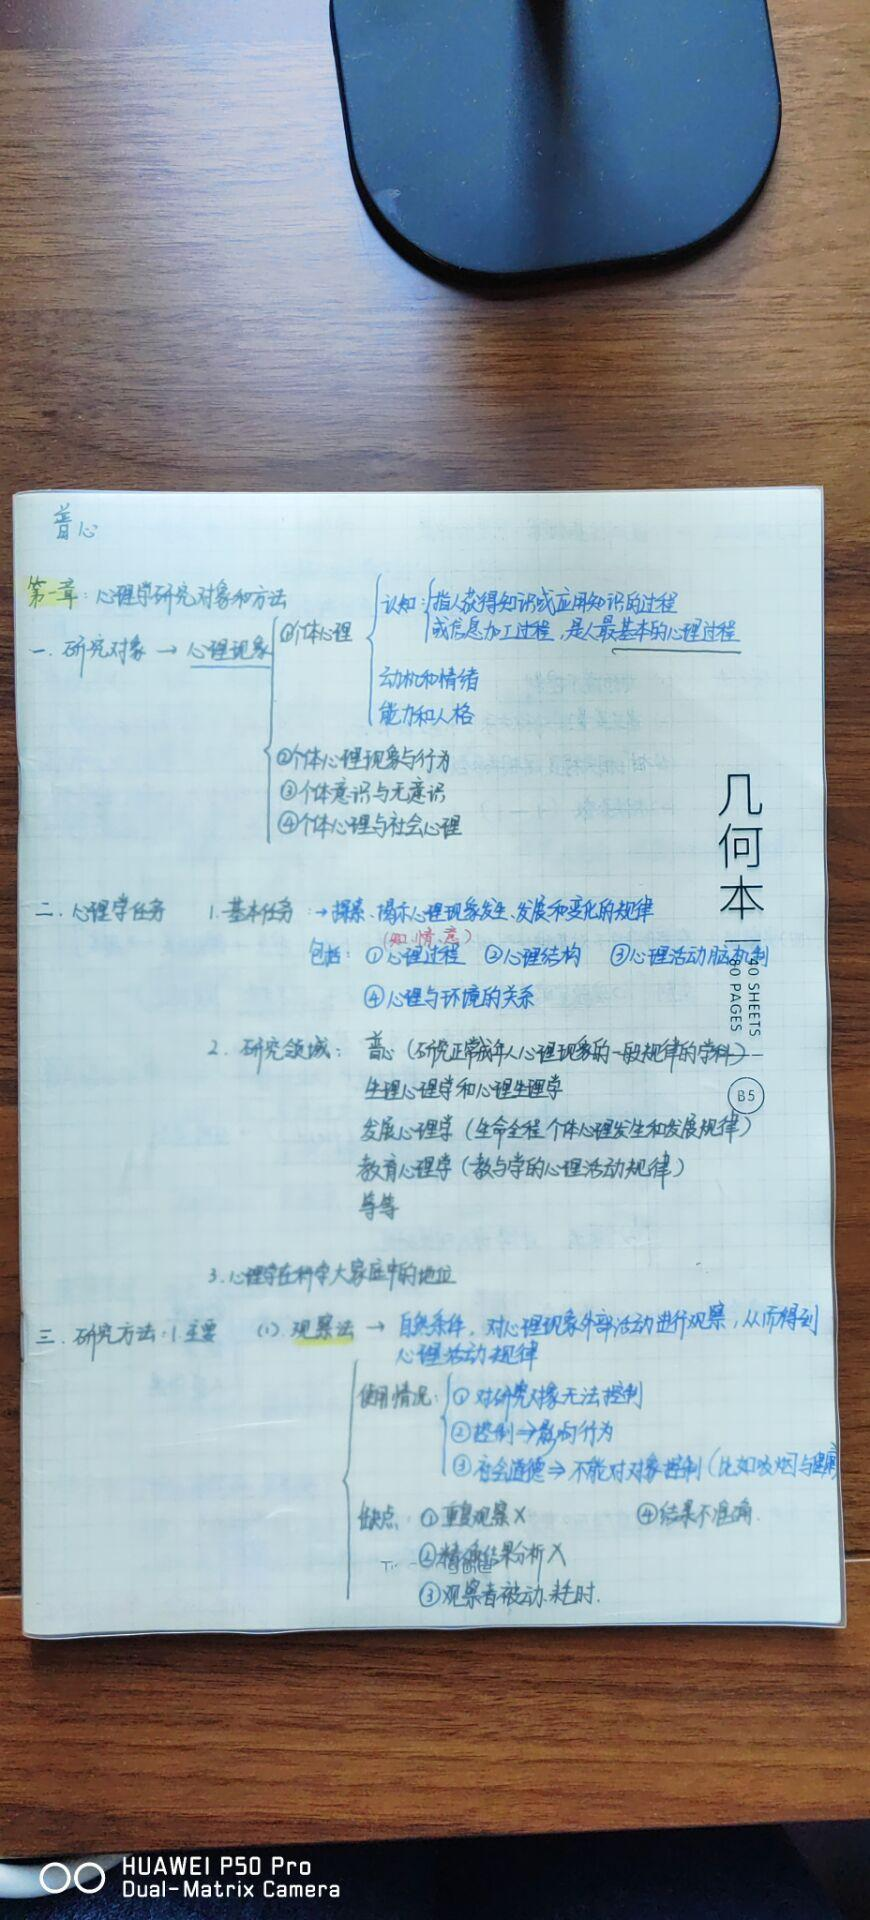 普心
第一章：心理学研究对象和方法
一．研究对象 → 心理现象
①个体心理
认知：指人获得知识或应用知识的过程
或信息加工过程，是人最基本的心理过程
动机和情绪
能力和人格
②个体心理现象与行为
③个体意识与无意识
④个体心理与社会心理
二．心理学任务 1.基本任务：→探索、揭示心理现象发生、发展和变化的规律
(知、情、意)
包括：①心理过程 ②心理结构 ③心理活动脑机制
④心理与环境的关系
2．研究领域：普心（研究正常成年人心理现象的一般规律的学科）
生理心理学和心理生理学
发展心理学（生命全程个体心理发生和发展规律）
教育心理学（教与学的心理活动规律）
等等
3.心理学在科学大家庭中的地位
三．研究方法：1.主要 (1).观察法 → 自然条件，对心理现象外部活动进行观察，从而得到
心理活动规律
使用情况：①对研究对象无法控制
②控制→影响行为
③社会道德⇒不能对对象控制（比如吸烟与
缺点：①重复观察× ④结果不准确.
②精确结果分析×
③观察者被动.耗时.
几何本
40 SHEETS
80 PAGES
B5
HUAWEI P50 Pro
Dual-Matrix Camera